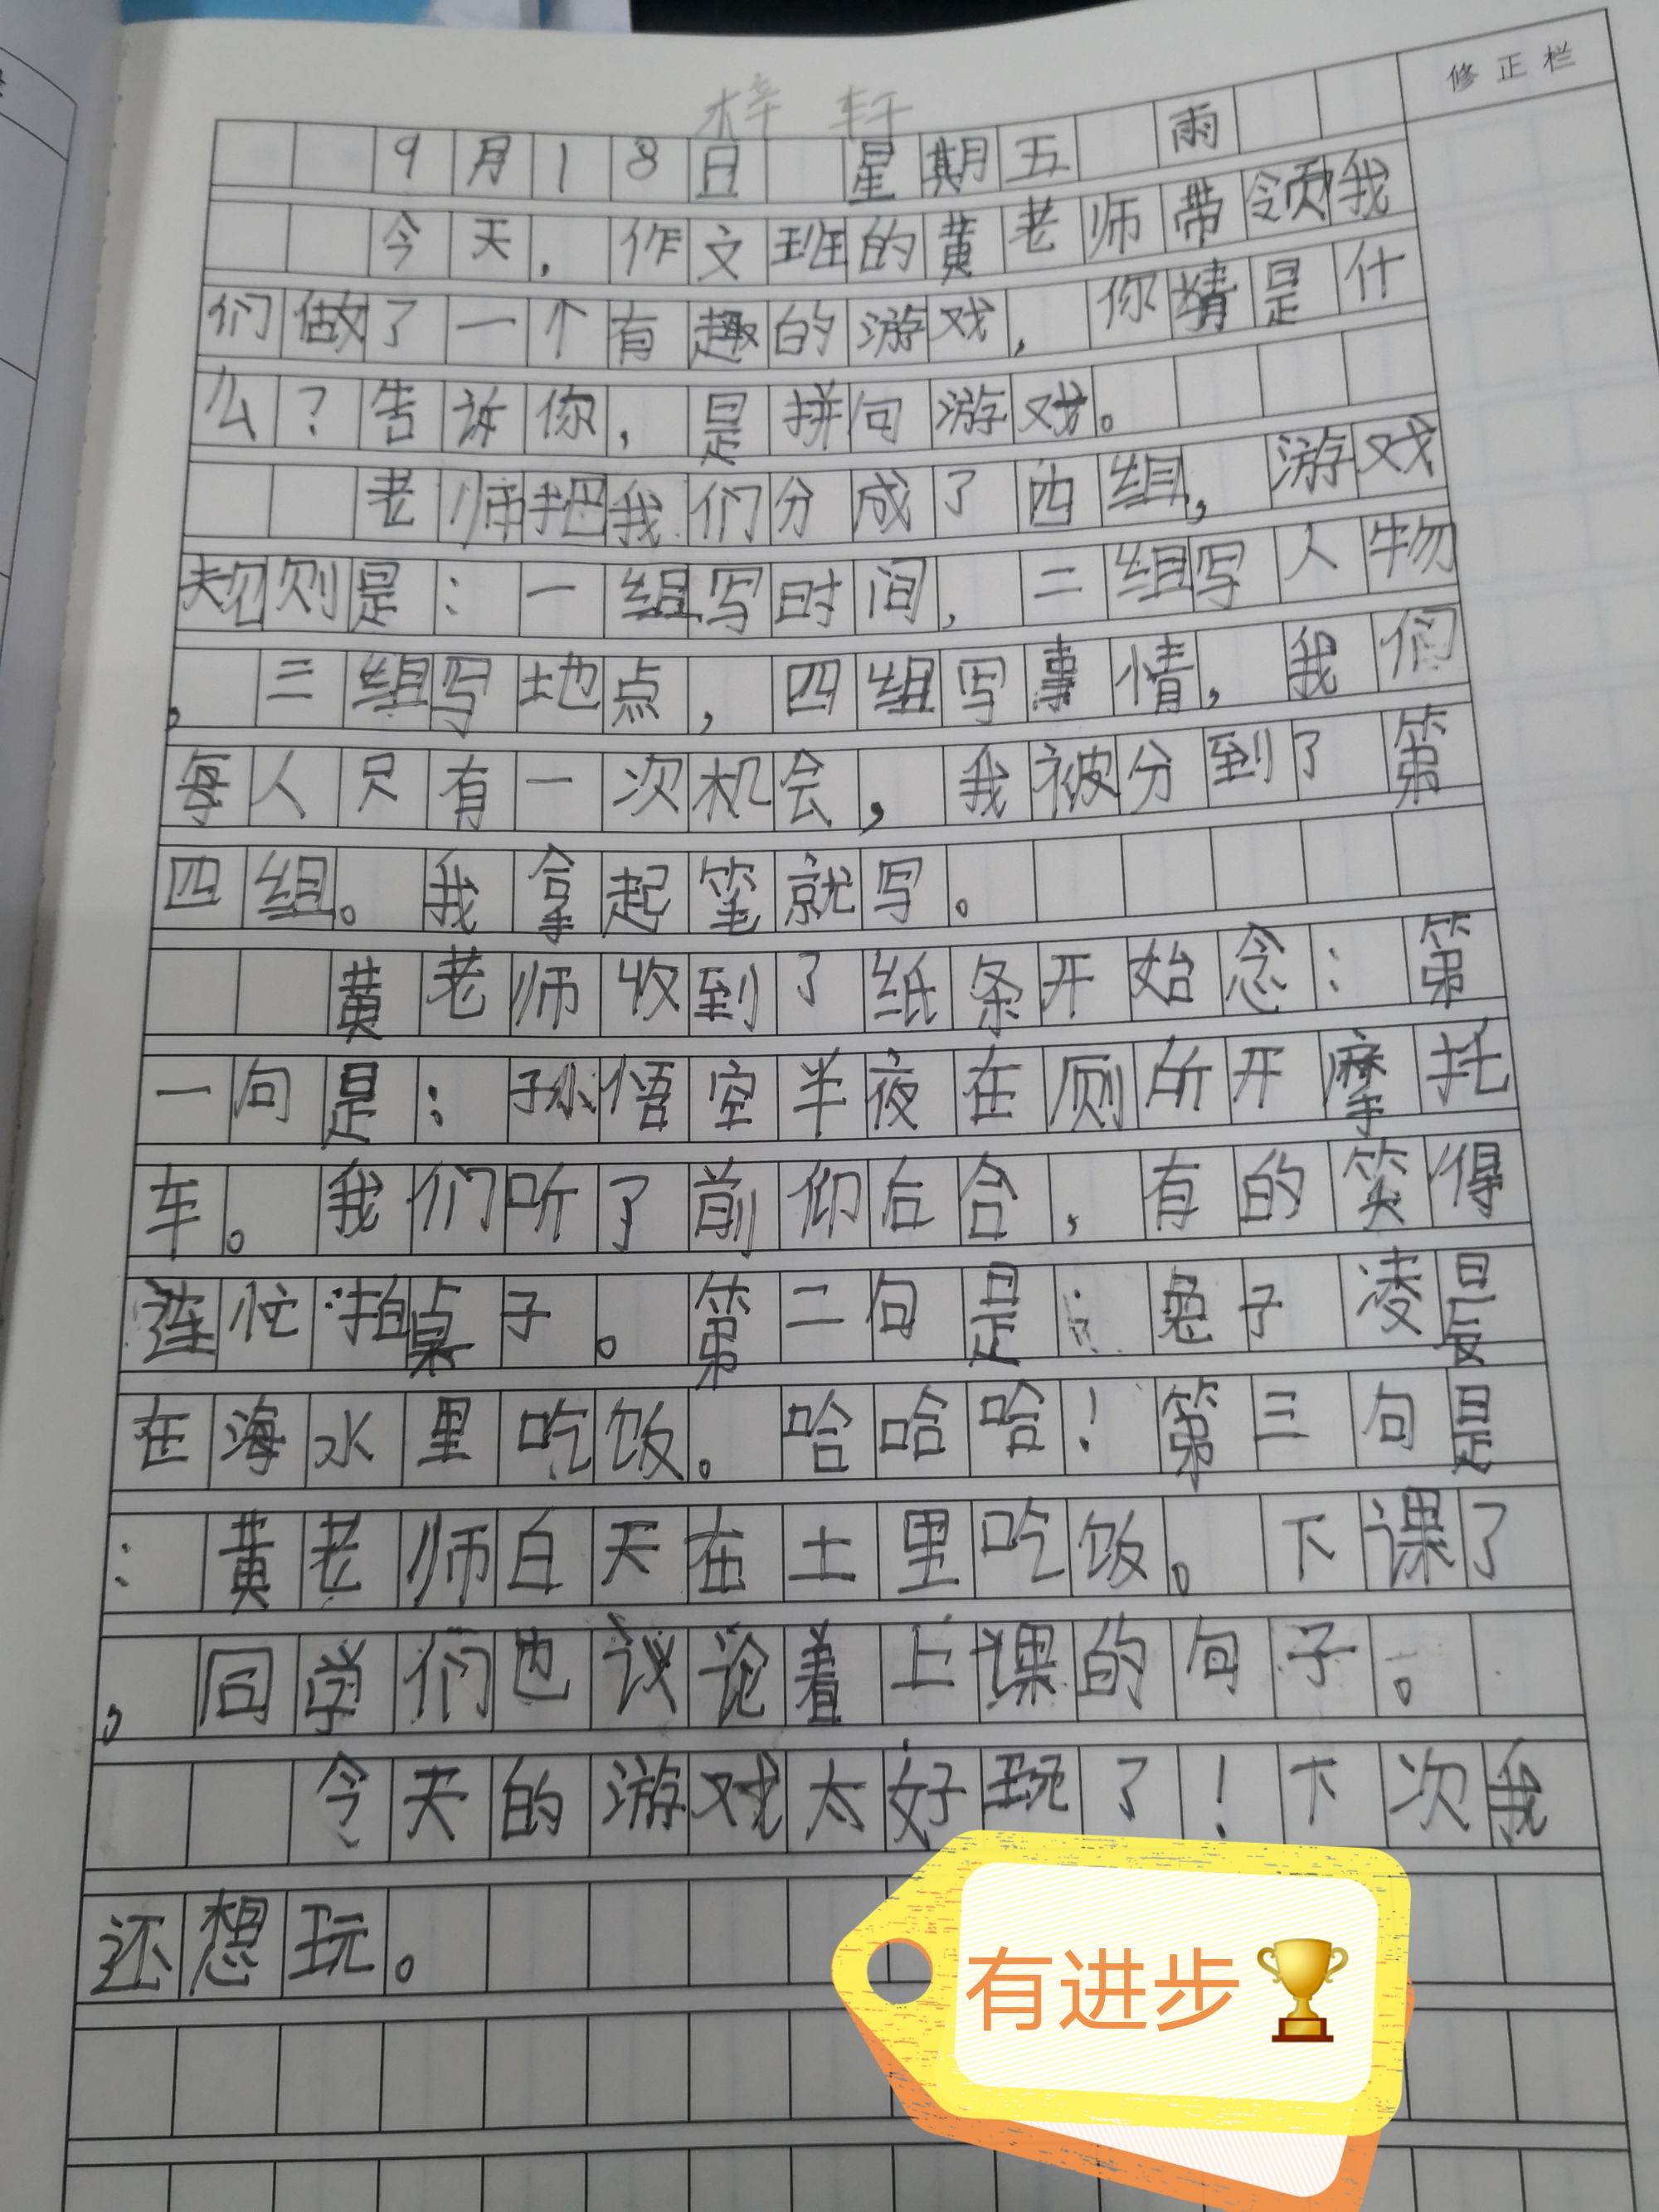 修正栏
梓轩
9月18日 星期五 雨
今天，作文班的黄老师带领我
们做了一个有趣的游戏，你猜是什
么？告诉你，是拼句游戏。
老师把我们分成了四组，游戏
规则是：一组写时间，二组写人物
，三组写地点，四组写事情，我们
每人只有一次机会，我被分到了第
四组。我拿起笔就写。
黄老师收到了纸条开始念：第
一句是：孙悟空半夜在厕所开摩托
车。我们听了前仰后合，有的笑得
连忙拍桌子。第二句是：兔子凌晨
在海水里吃饭。哈哈哈！第三句是
：黄老师白天在土里吃饭。下课了
，同学们也议论着上课的句子。
今天的游戏太好玩了！下次我
还想玩。
有进步🏆